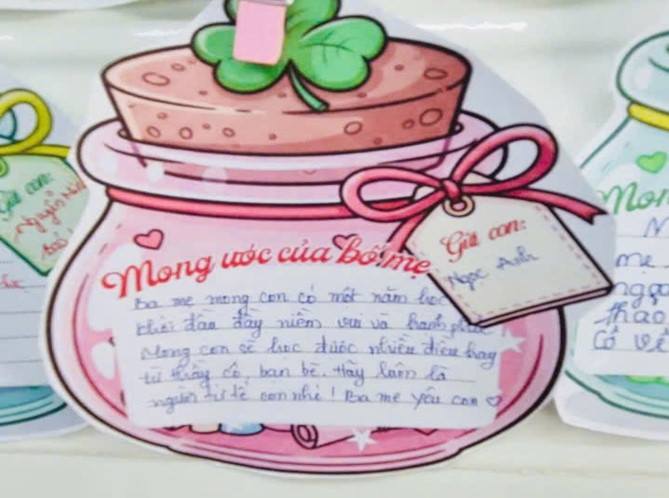 Mong ước của bố mẹ
Gửi con:
Ngọc Anh
Ba mẹ mong con có một năm học
khởi đầu đầy niềm vui và hạnh phúc
Mong con sẽ học được nhiều điều hay
từ thầy cô, bạn bè. Hãy luôn là
người tử tế con nhé! Ba mẹ yêu con
Gửi con:
Nguyễn
Mon
N
mẹ
ngoa
thảo
Có vẽ